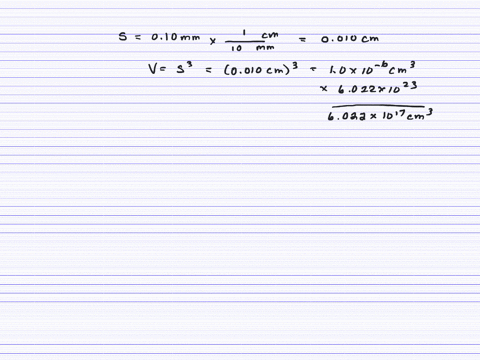 S = 0.10 mm × 1 cm / 10 mm = 0.010 cm
V = S³ = (0.010 cm)³ = 1.0 × 10⁻⁶ cm³
× 6.022 × 10²³
6.022 × 10¹⁷ cm³